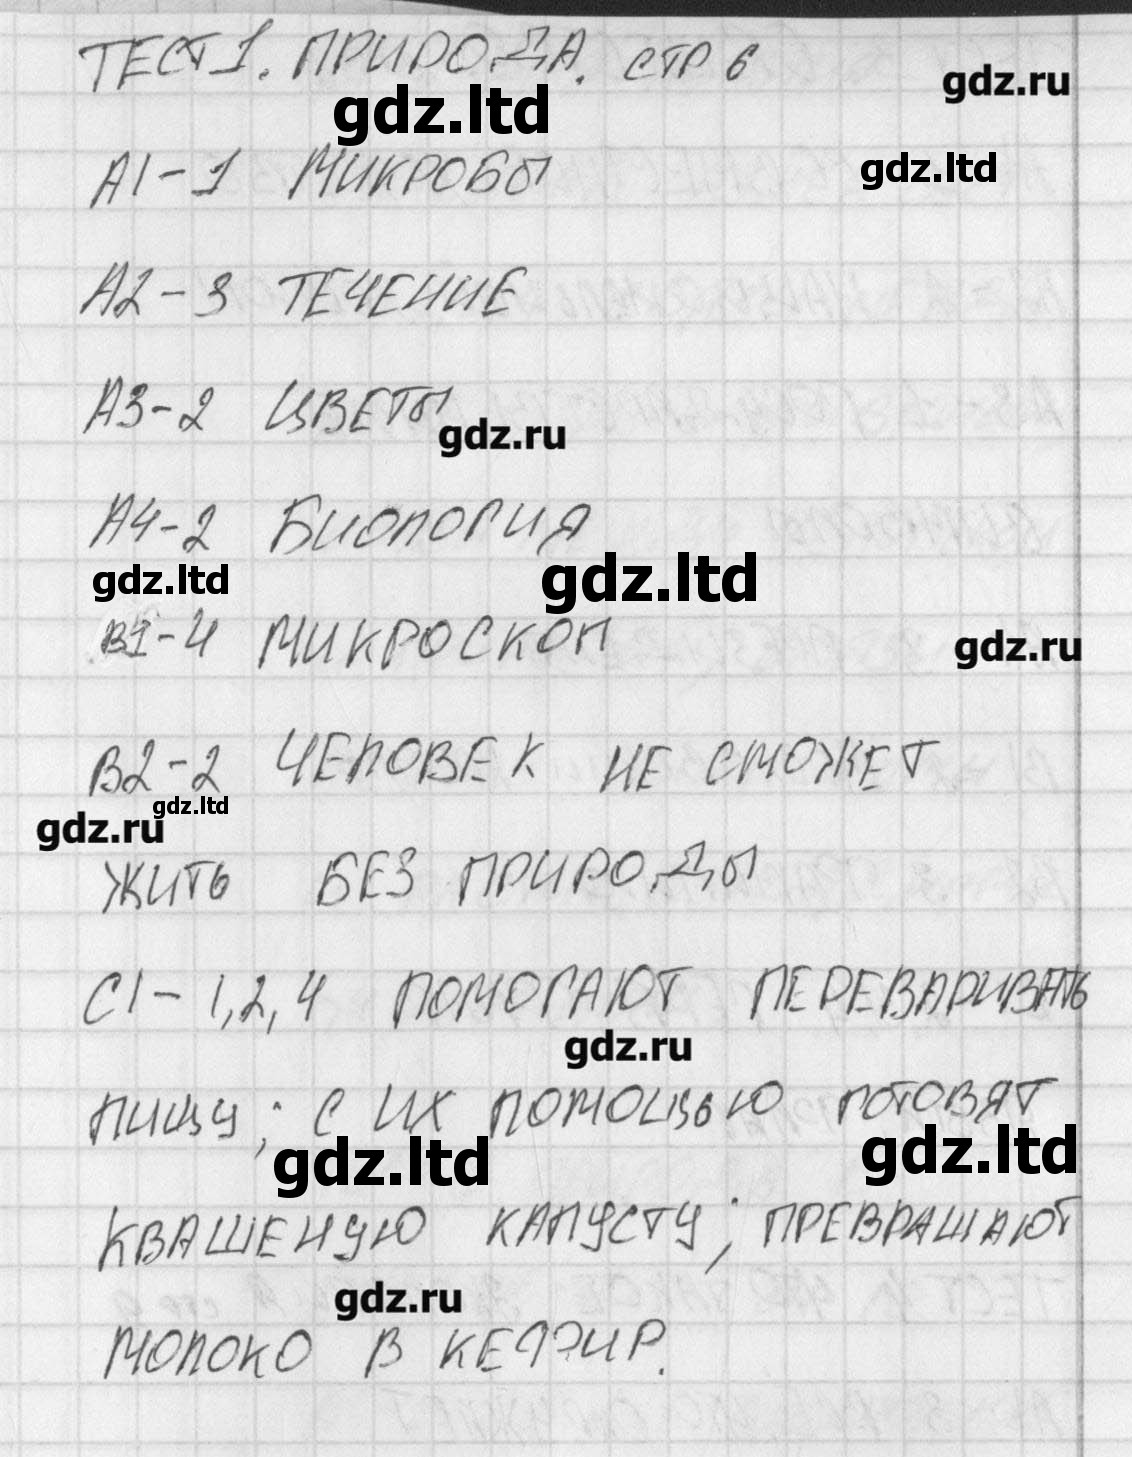 ТЕСТ 1. ПРИРОДА. СТР 6
gdz.ru
gdz.ltd
А1-1 МИКРОБЫ
gdz.ltd
А2-3 ТЕЧЕНИЕ
А3-2 ЦВЕТЫ
gdz.ru
А4-2 БИОЛОГИЯ
gdz.ltd
gdz.ltd
В1-4 МИКРОСКОП
gdz.ru
В2-2 ЧЕЛОВЕК НЕ СМОЖЕТ
gdz.ltd
gdz.ru
ЖИТЬ БЕЗ ПРИРОДЫ
С1-1,2,4 ПОМОГАЮТ ПЕРЕВАРИВАТЬ
gdz.ru
ПИЩУ; С ИХ ПОМОЩЬЮ ГОТОВЯТ
gdz.ltd
gdz.ltd
КВАШЕНУЮ КАПУСТУ; ПРЕВРАЩАЮТ
gdz.ru
МОЛОКО В КЕФИР.